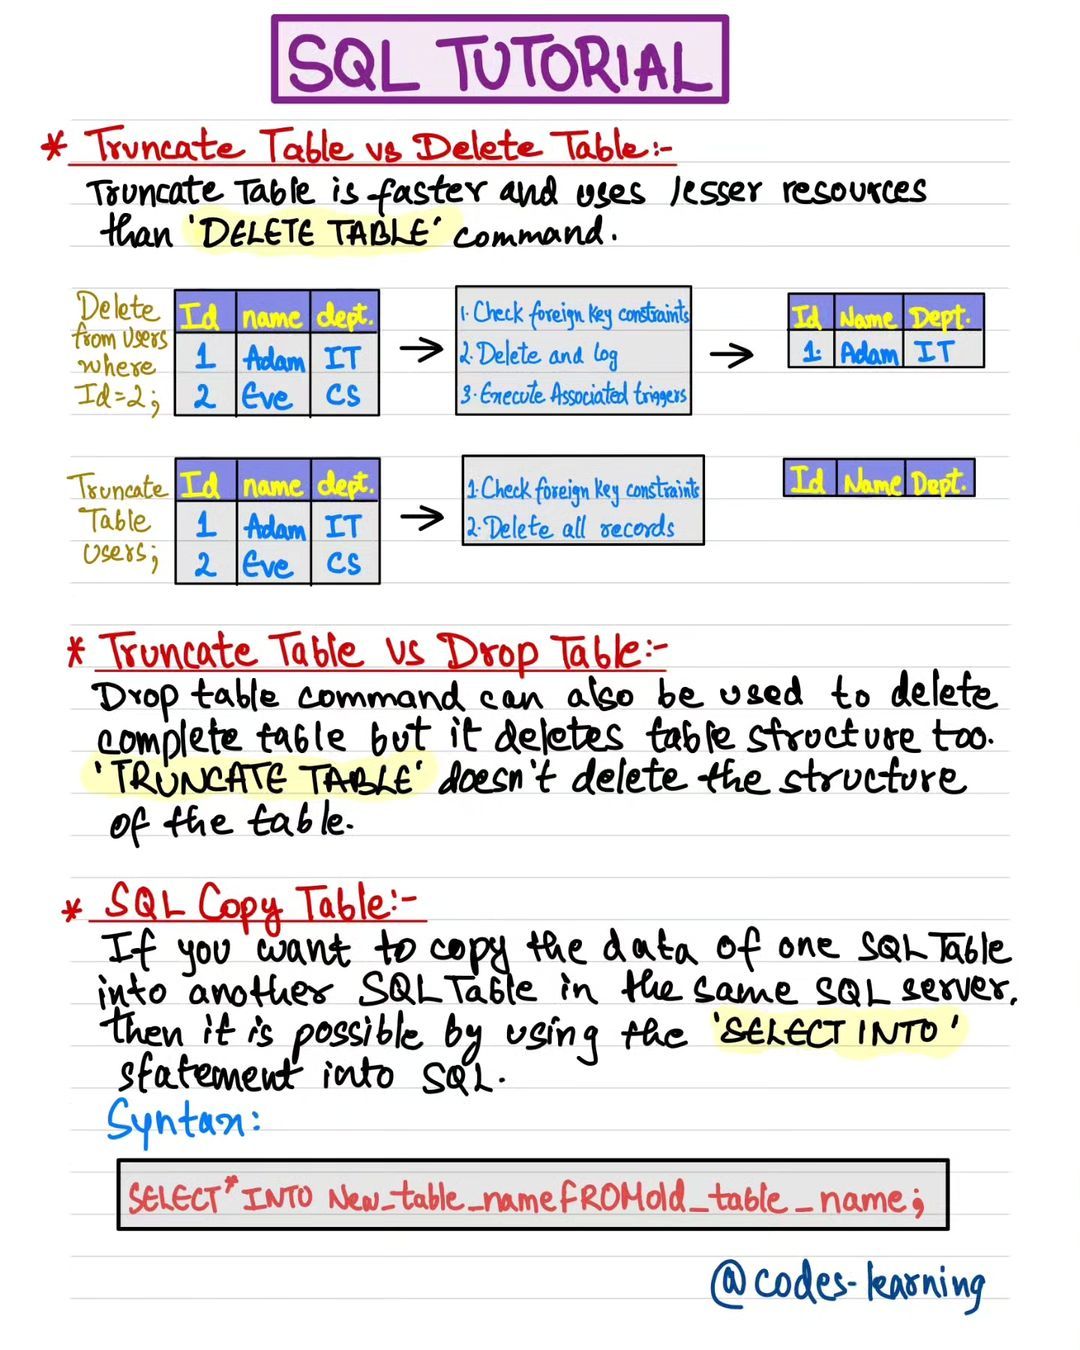 SQL TUTORIAL
* Truncate Table vs Delete Table:-
Truncate Table is faster and uses lesser resources
than 'DELETE TABLE' command.
Delete
from Users
where
Id=2;
Id name dept.
1 Adam IT
2 Eve CS
1. Check foreign key constraints
2. Delete and log
3. Execute Associated triggers
Id Name Dept.
1. Adam IT
Truncate
Table
Users;
Id name dept.
1 Adam IT
2 Eve CS
1. Check foreign key constraints
2. Delete all records
Id Name Dept.
* Truncate Table vs Drop Table:-
Drop table command can also be used to delete
complete table but it deletes table structure too.
'TRUNCATE TABLE' doesn't delete the structure
of the table.
* SQL Copy Table:-
If you want to copy the data of one SQL Table
into another SQL Table in the same SQL server,
then it is possible by using the 'SELECT INTO'
statement into SQL.
Syntax:
SELECT * INTO New_table_name FROM old_table_name;
@codes-learning